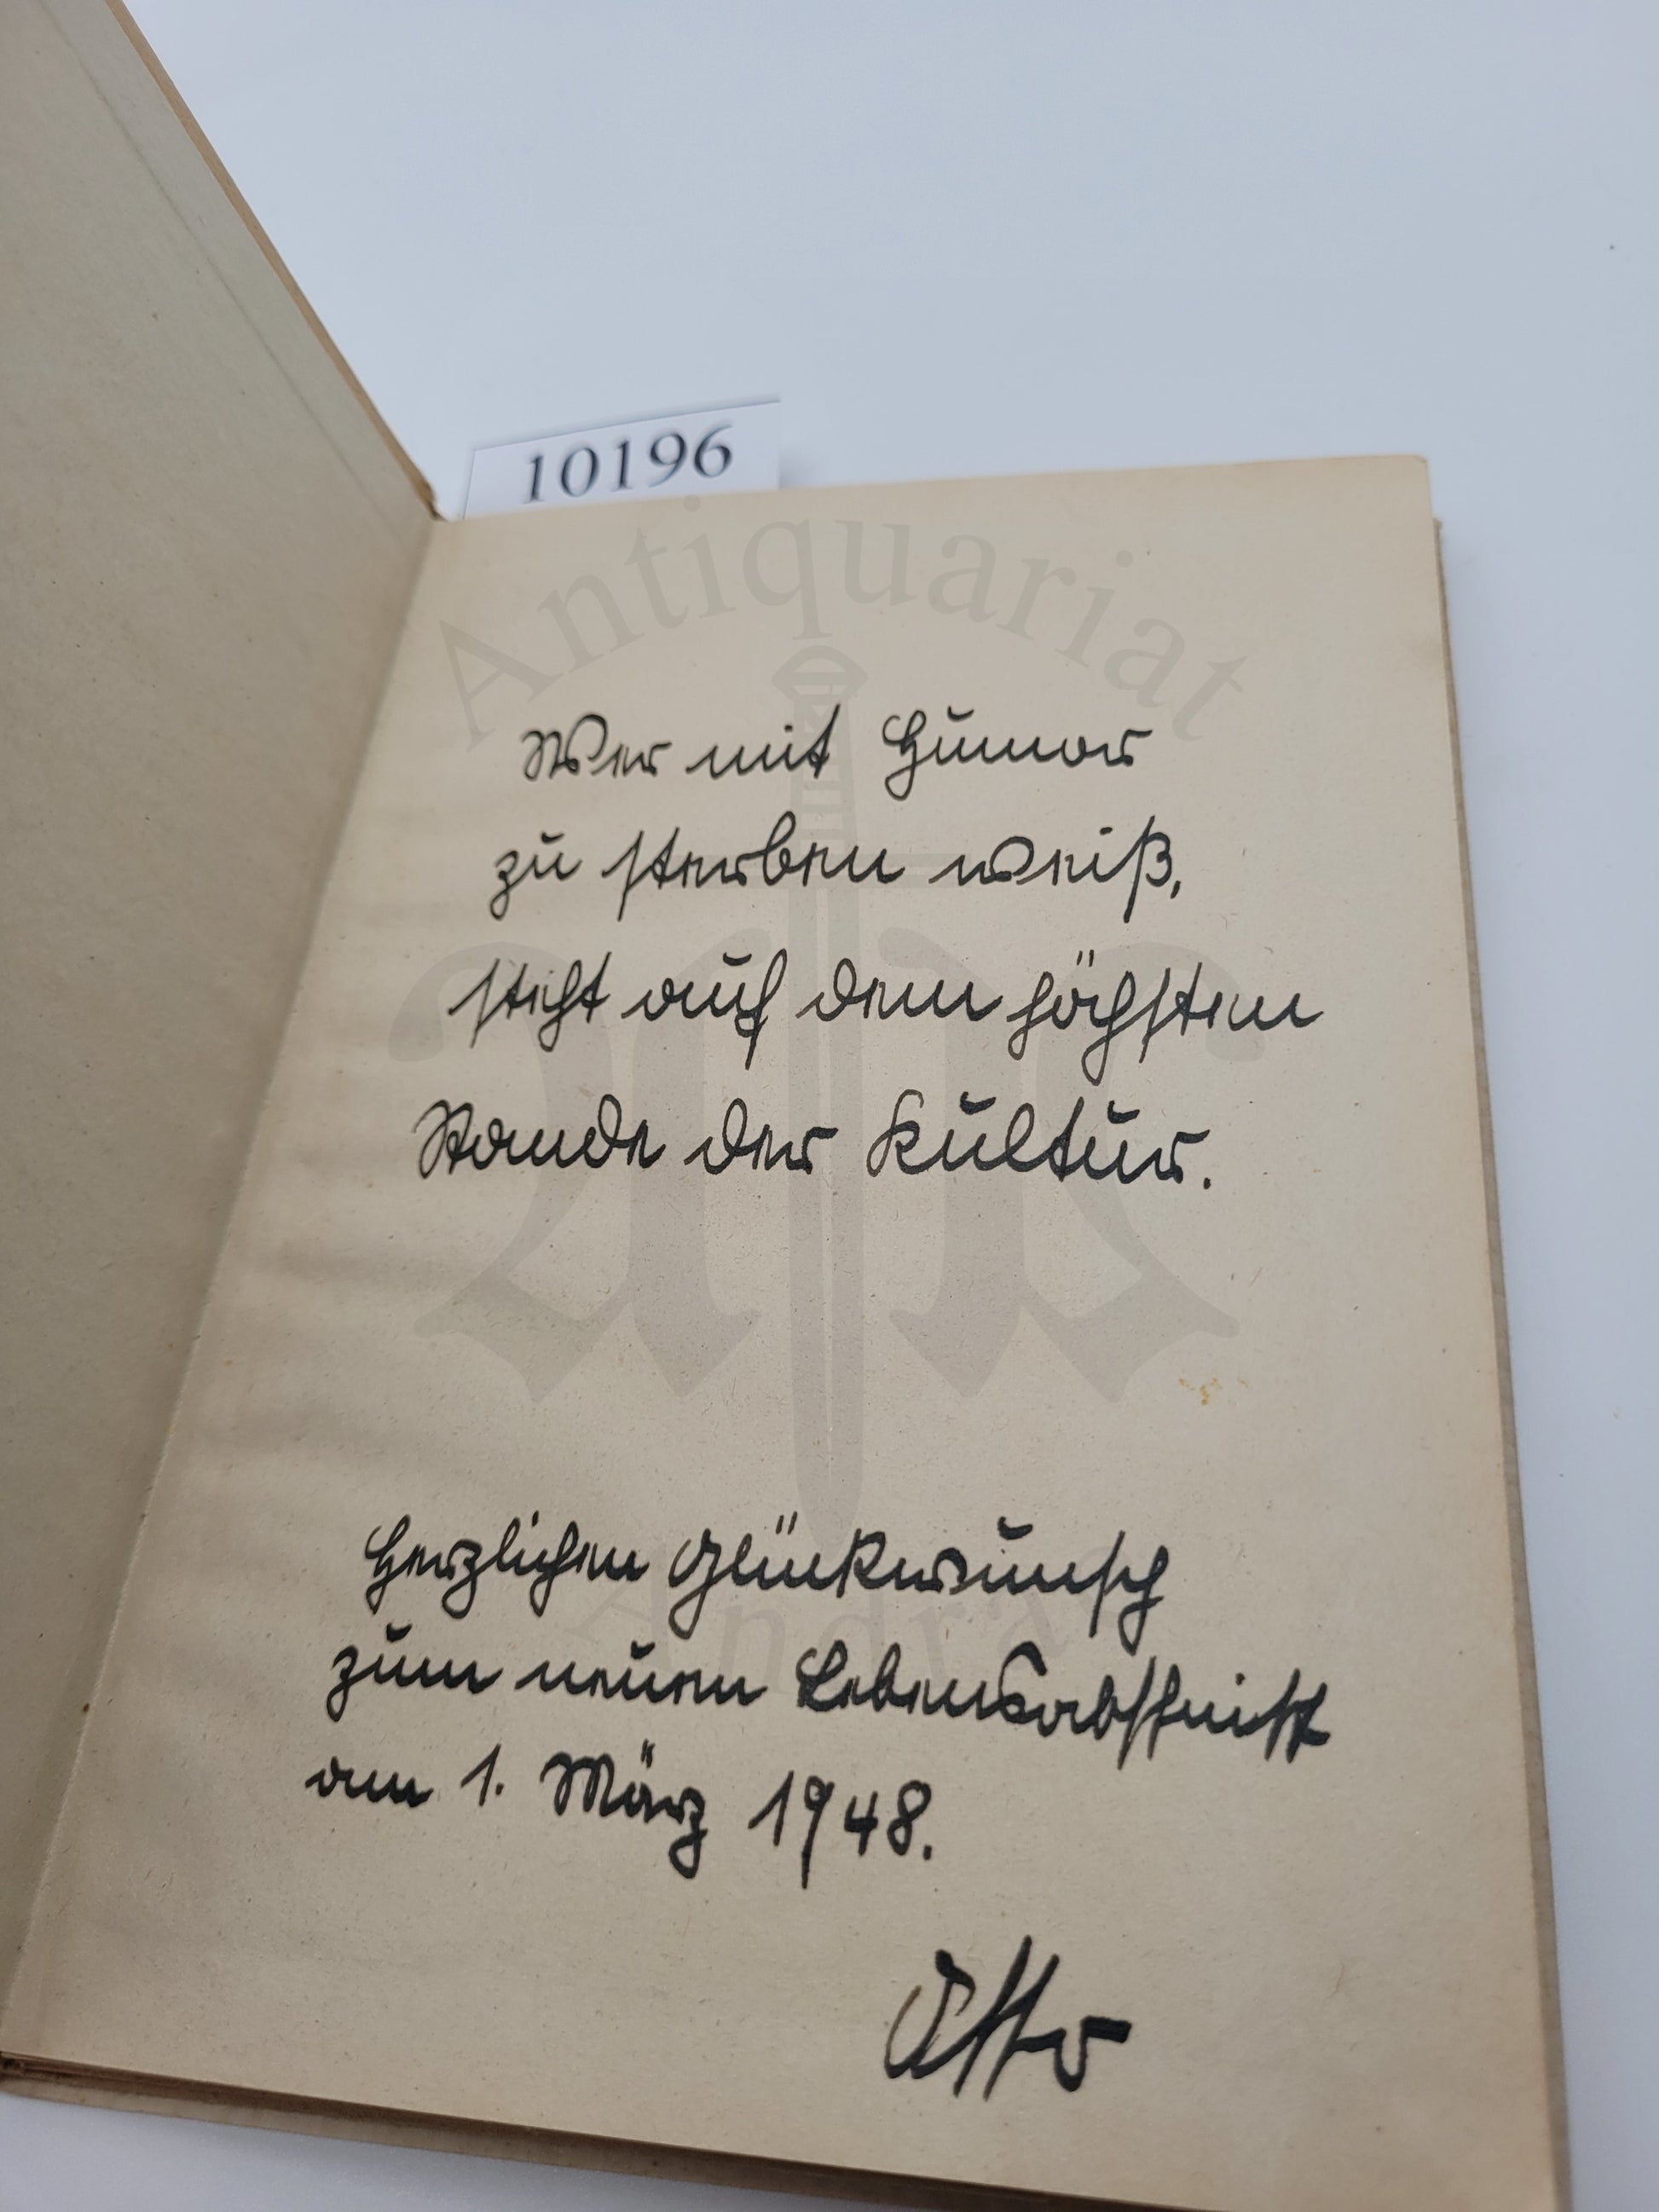 10196
Antiquariat
Wer mit Humor
zu sterben weiß,
steht auf dem höchsten
Stande der Kultur.
Herzlichen Glückwunsch
zum neuen Lebensabschnitt
am 1. März 1948.
Otto
André